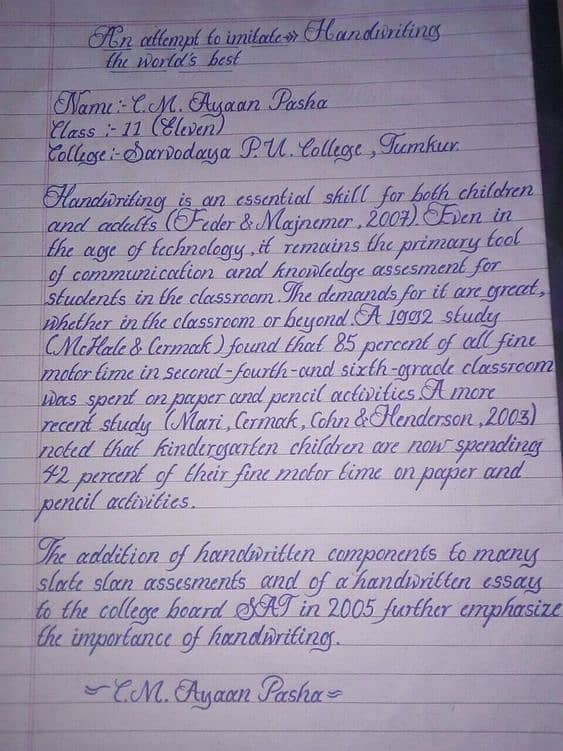 An attempt to imitate Handwriting
the world's best
Name:- C.M. Ayaan Pasha
Class :- 11 (Eleven)
College:- Sarvodaya P.U. College, Tumkur.
Handwriting is an essential skill for both children
and adults (Feder & Majnemer, 2007). Even in
the age of technology, it remains the primary tool
of communication and knowledge assesment for
students in the classroom. The demands for it are great,
whether in the classroom or beyond. A 1992 study
(McHale & Cermak) found that 85 percent of all fine
motor time in second-fourth-and sixth-grade classroom
was spent on paper and pencil activities. A more
recent study (Marr, Cermak, Cohn & Henderson, 2003)
noted that kindergarten children are now spending
42 percent of their fine motor time on paper and
pencil activities.
The addition of handwritten components to many
state slan assesments and of a handwritten essay
to the college board SAT in 2005 further emphasize
the importance of handwriting.
~C.M. Ayaan Pasha~